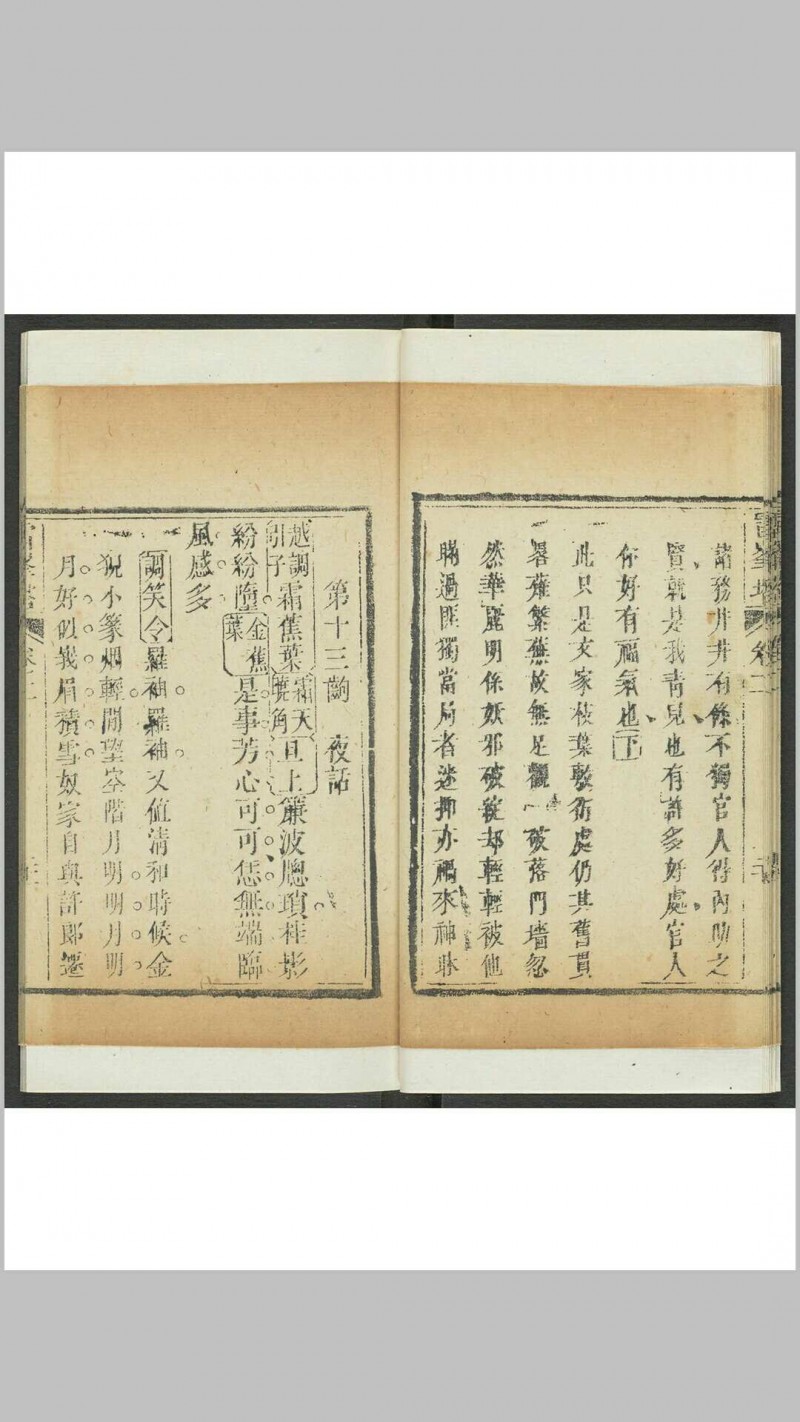 諸務井井有條不獨官人得內助之
賢就是我青兒也有許多好處官人
你好有福氣也下
此只是文家枝葉敷衍處仍其舊貫
畧薙繁蕪故無足觀 破落門墻忽
然華麗明係妖邪破綻却輕輕被他
瞞過匪獨當局者迷抑亦禍來神昧
第十三齣 夜話
越調引子霜蕉葉霜天曉角亙上簾波牕瑣袿影
紛紛墮金蕉葉是事芳心可可恁無端臨
風感多
調笑令羅袖羅袖又值清和時候金
猊小篆烟輕閒望空階月明明月明
月好似峩眉積雪奴家自與許郎遷